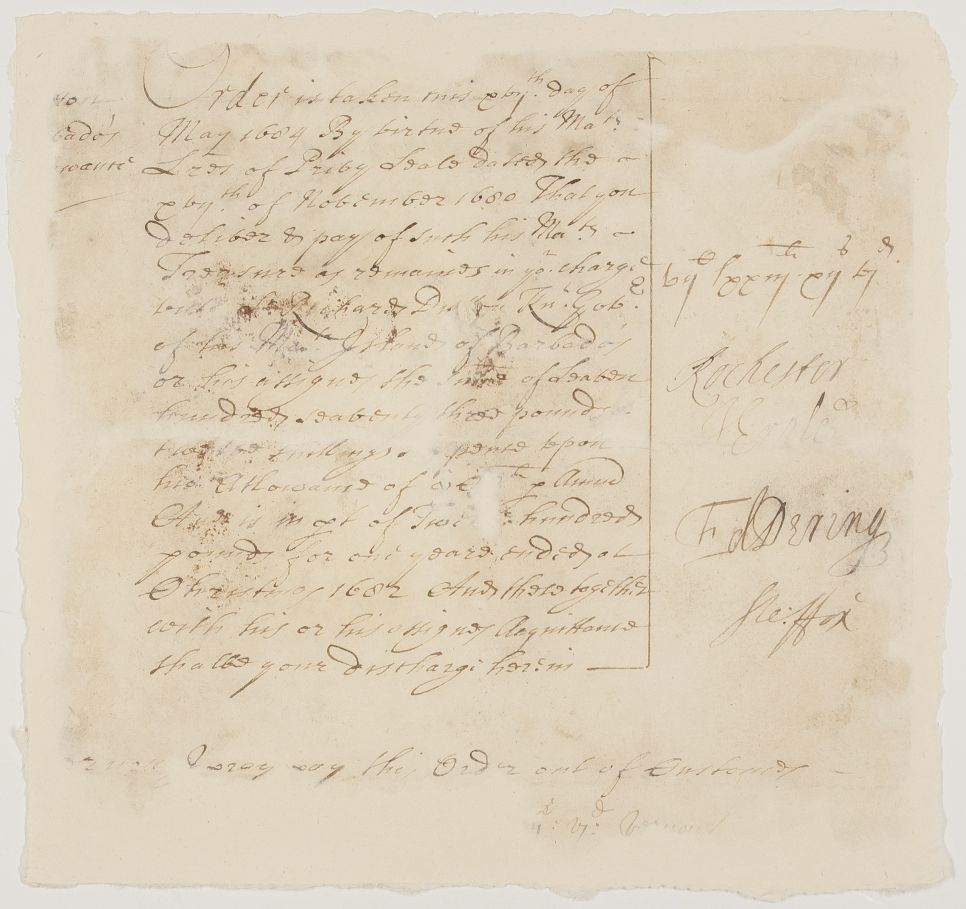 Order is taken this xvijth day of
May 1684 By virtue of his Mats
Lres of Privy Seale dated the
xvijth of November 1680 That you
deliver & pay of such his Mats
Treasure as remaines in yor charge
unto Sr Richard Knt Govr
of his Mats Island of Barbados
or his assignes the Summe of Seaven
hundred seaventy three pounds
twelve shillings pence upon
his Allowance of p Annu
And is in pt of hundred
pounds for one yeare ended at
Christmas 1682 And these together
with his or his assignes Acquittance
shalbe your discharge herein
vijC lxxiijli xijs vjd
Rochester
Ed Dering
Ste: ffox
I pray pay this Order out of Customes